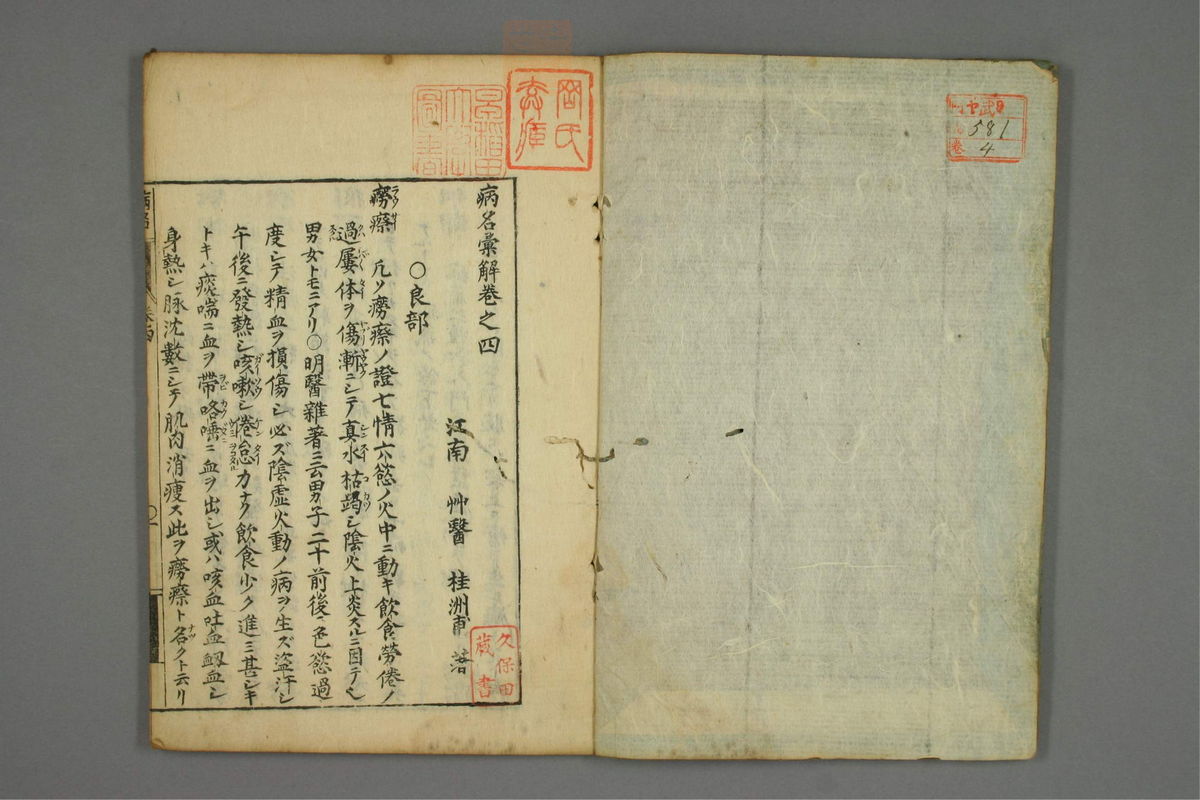 581
4
病名彙解巻之四
江南 艸醫 桂洲甫 著
○良部
癆瘵 凡ソ癆瘵ノ證七情六慾ノ火中ニ動キ飲食勞倦ノ
過屡体ヲ傷漸ニシテ真水枯竭シ陰火上炎スルニ因テ也
男女トモニアリ○明醫雜著ニ云男子二十前後色慾過
度シテ精血ヲ損傷シ必ズ陰虚火動ノ病ヲ生ズ盗汗シ
午後ニ發熱シ咳嗽シ倦怠力ナク飲食少ク進ミ甚シキ
トキハ痰喘ニ血ヲ帶咯唾ニ血ヲ出シ或ハ咳血吐血衂血シ
身熱シ脉沈數ニシテ肌肉消痩ス此ヲ癆瘵ト名クト云リ
久保田
蔵書